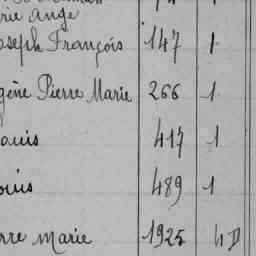 rie Ange
oseph François 147 1
gène Pierre Marie 266 1
ouis 417 1
ouis 489 1
rre Marie 1925 4 D